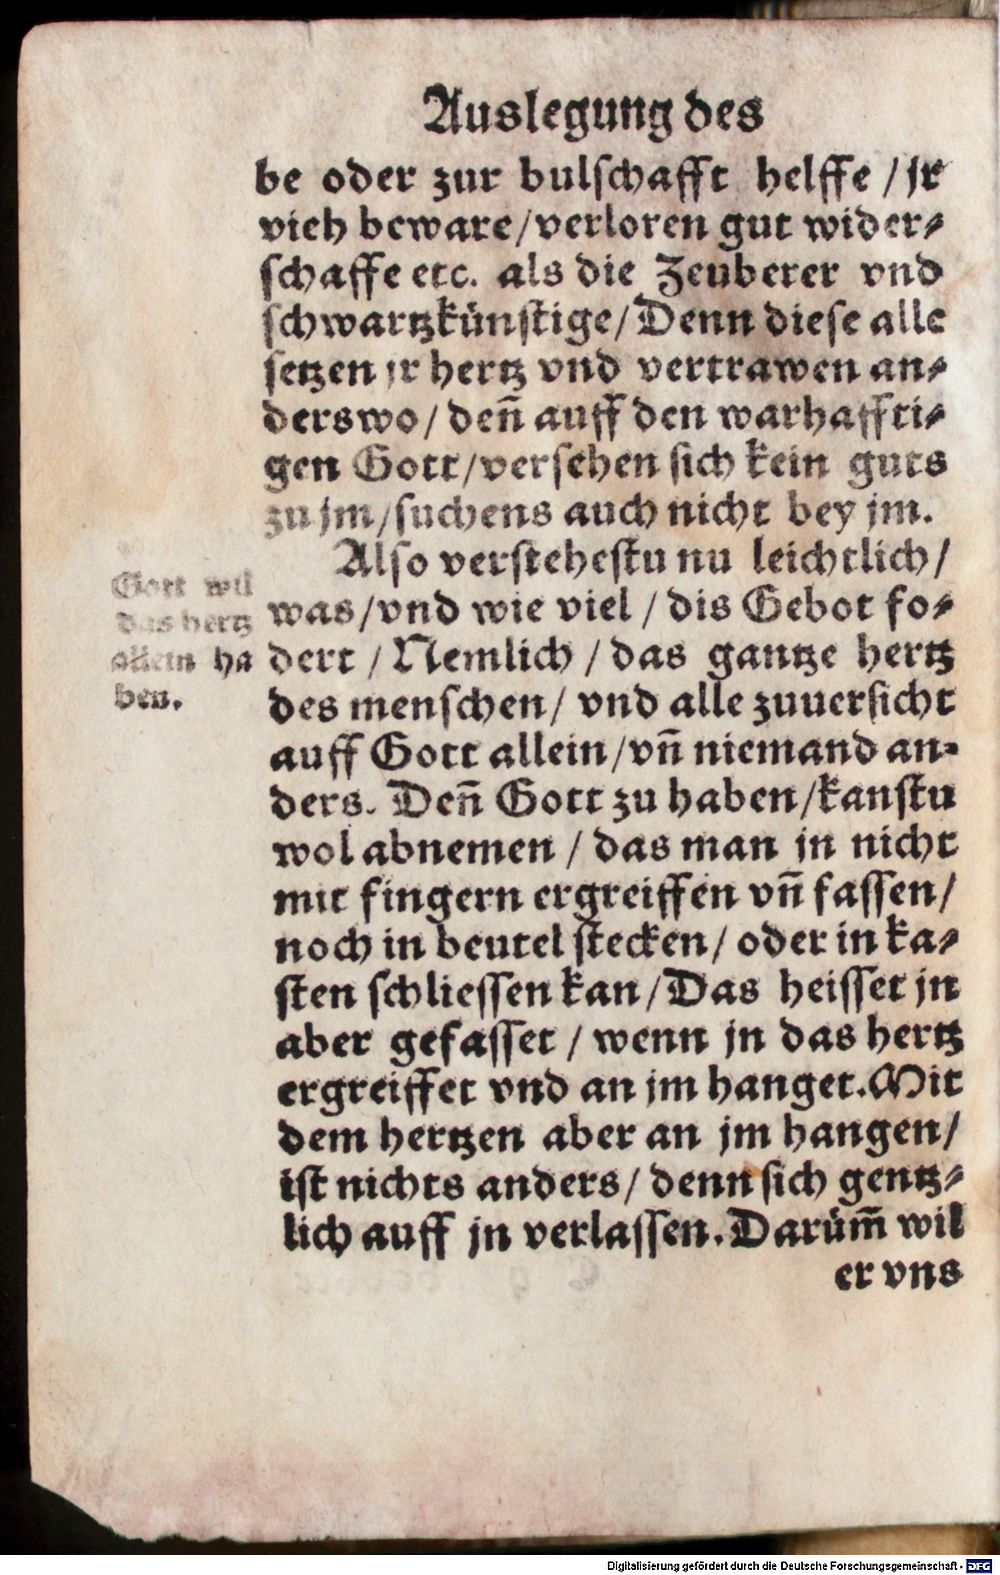 Auslegung des
be oder zur bulschafft helffe / jr
vieh beware/verloren gut wider⸗
schaffe etc. als die Zeuberer vnd
schwartzkünstige/Denn diese alle
setzen jr hertz vnd vertrawen an⸗
derswo/ deñ auff den warhaffti⸗
gen Gott/versehen sich kein guts
zu jm/suchens auch nicht bey jm.
Also verstehestu nu leichtlich/
was/vnd wie viel / dis Gebot fo⸗
dert / Nemlich / das gantze hertz
des menschen/ vnd alle zuuersicht
auff Gott allein/vñ niemand an⸗
ders. Deñ Gott zu haben/kanstu
wol abnemen / das man jn nicht
mit fingern ergreiffen vñ fassen/
noch in beutel stecken/ oder in ka⸗
sten schliessen kan/Das heisset jn
aber gefasset / wenn jn das hertz
ergreiffet vnd an jm hanget.Mit
dem hertzen aber an jm hangen/
ist nichts anders/ denn sich gentz⸗
lich auff jn verlassen.Darüm̃ wil
er vns
Gott wil
das hertz
allein ha
ben.
Digitalisierung gefördert durch die Deutsche Forschungsgemeinschaft - DFG